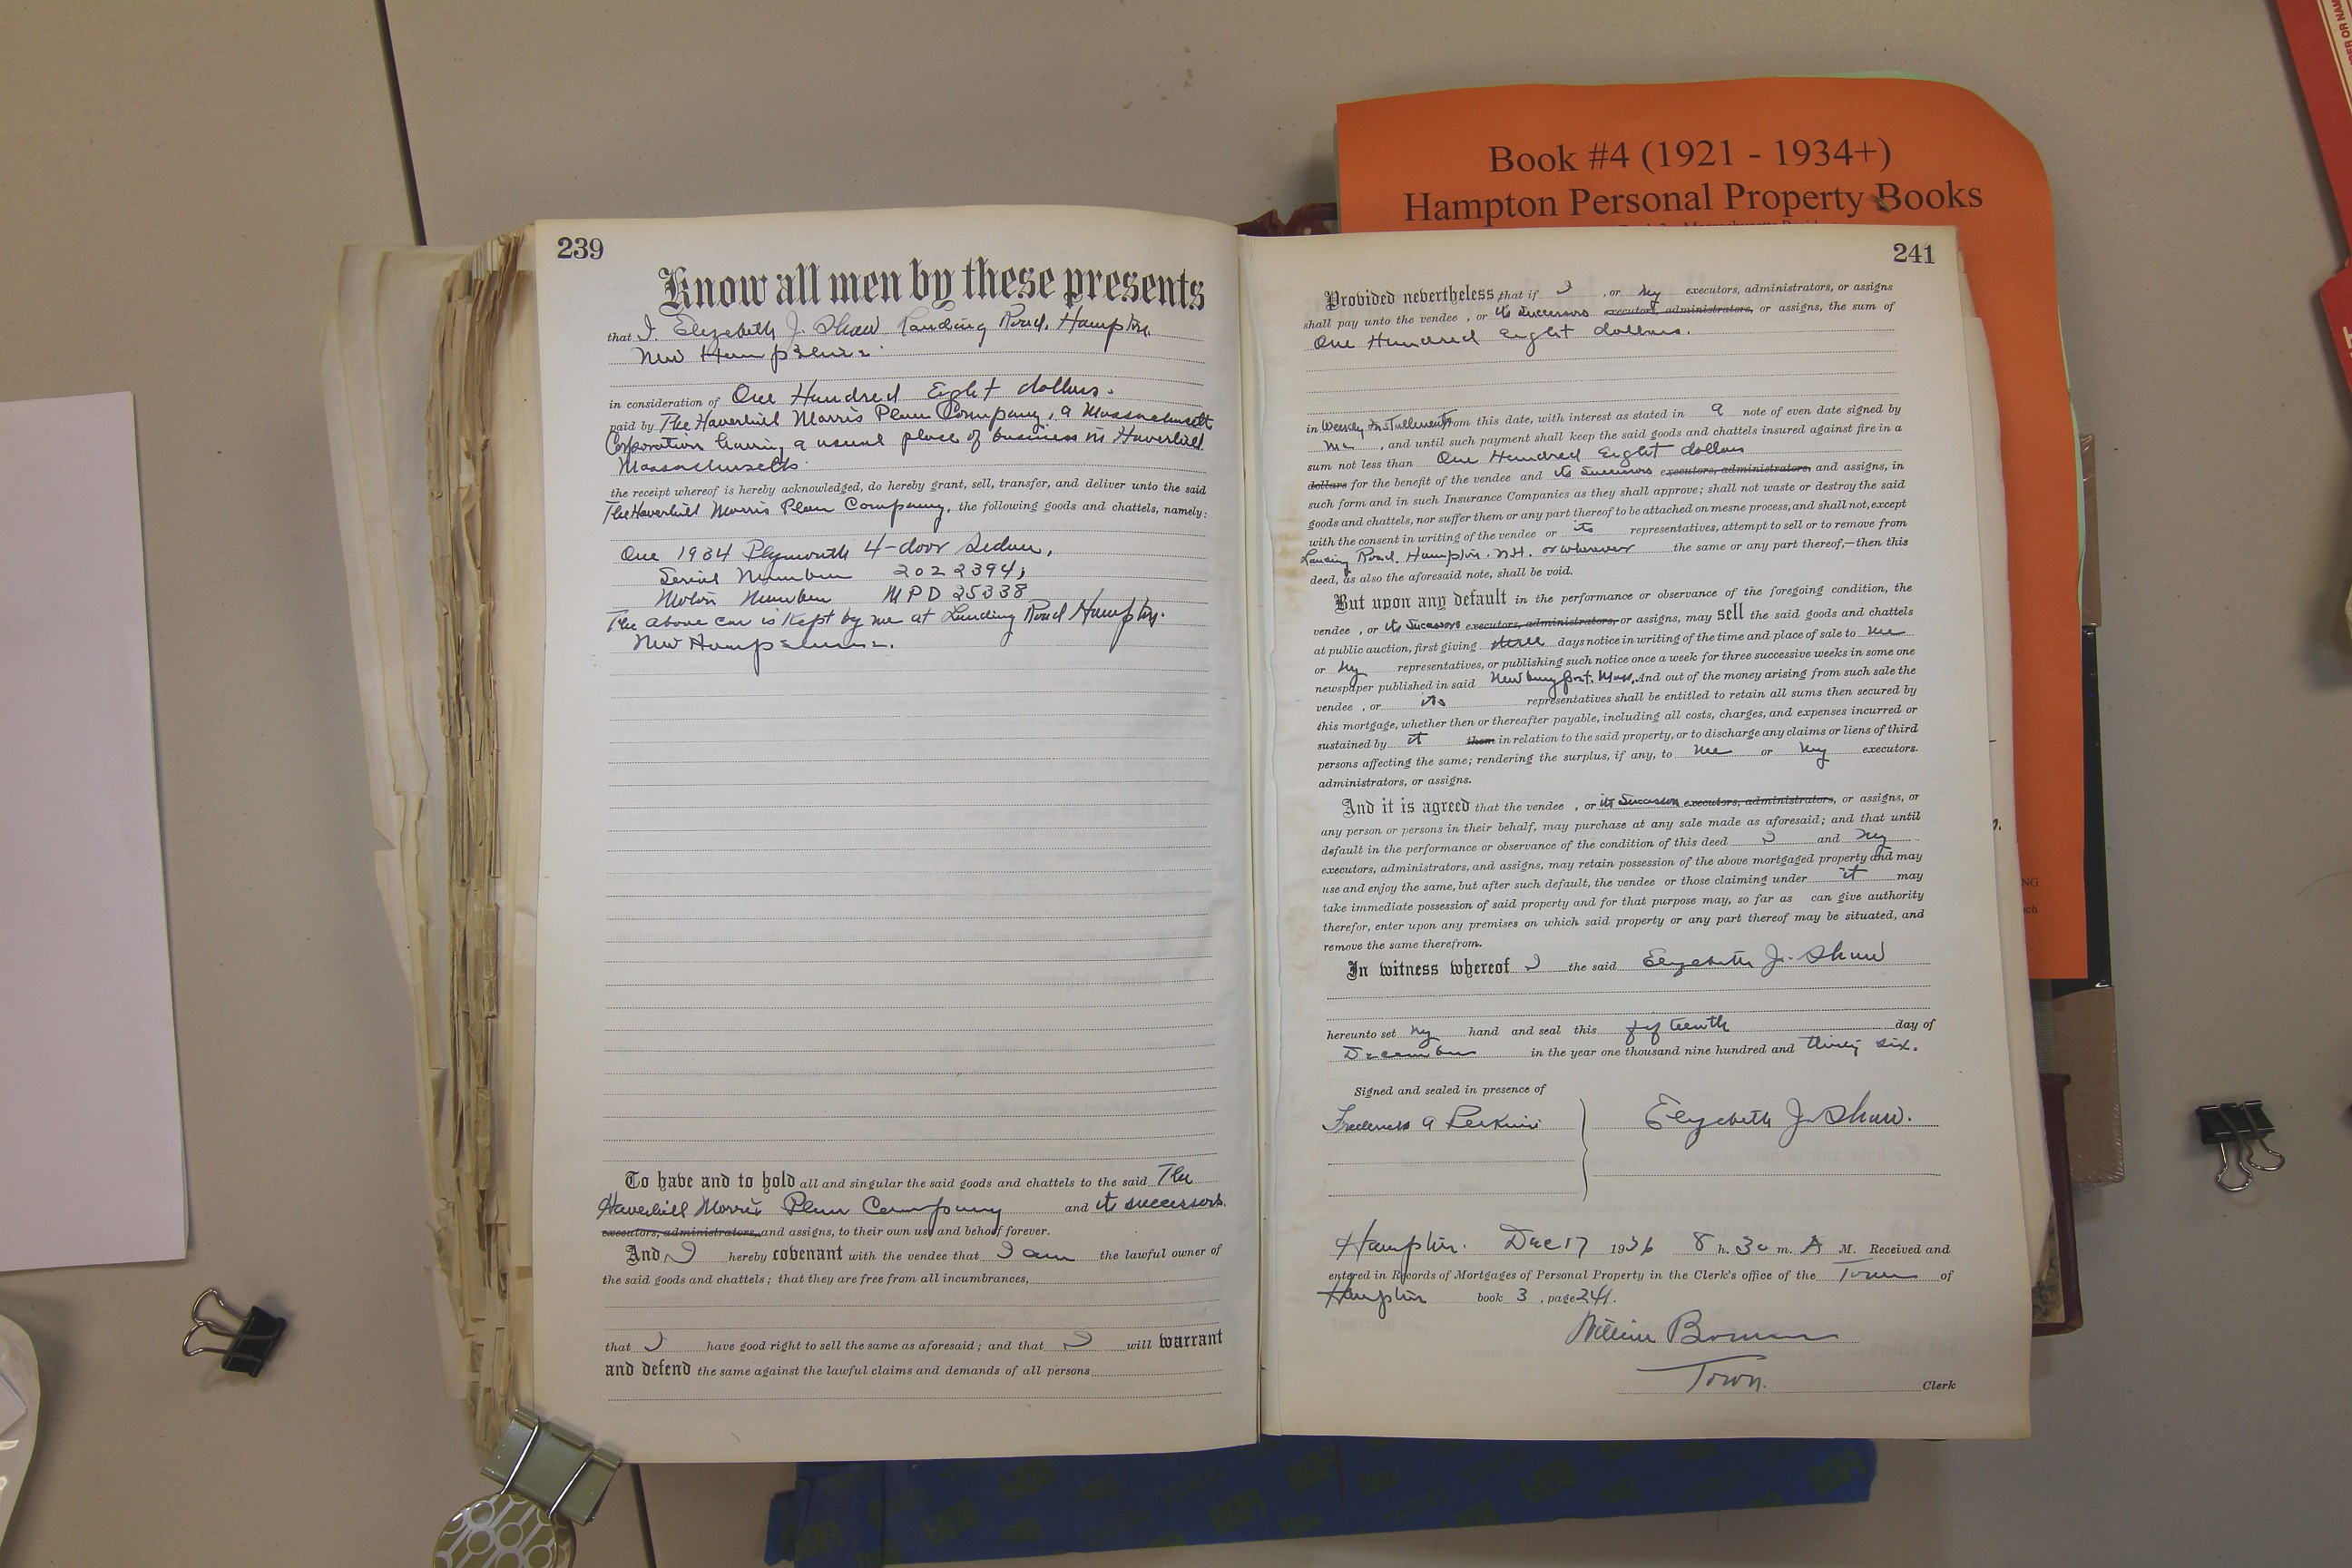 Book #4 (1921 - 1934+)
Hampton Personal Property Books
239
Know all men by these presents
that I. Elizabeth J. Shaw Landing Road. Hampton
New Hampshire.
in consideration of One Hundred Eight dollars.
paid by The Haverhill Morris Plan Company, a Massachusetts
Corporation having a usual place of business in Haverhill
Massachusetts.
the receipt whereof is hereby acknowledged, do hereby grant, sell, transfer, and deliver unto the said
The Haverhill Morris Plan Company, the following goods and chattels, namely:
One 1934 Plymouth 4-door Sedan,
Serial Number 2022394;
Motor Number MPD 25338
The above car is kept by me at Landing Road Hampton.
New Hampshire.
To have and to hold all and singular the said goods and chattels to the said The
Haverhill Morris Plan Company and its successors.
executors, administrators, and assigns, to their own use and behoof forever.
And I hereby covenant with the vendee that I am the lawful owner of
the said goods and chattels; that they are free from all incumbrances,
that I have good right to sell the same as aforesaid; and that I will warrant
and defend the same against the lawful claims and demands of all persons
241
Provided nevertheless that if I , or my executors, administrators, or assigns
shall pay unto the vendee , or its successors executors, administrators, or assigns, the sum of
One Hundred Eight dollars.
in Weekly Installments from this date, with interest as stated in a note of even date signed by
me , and until such payment shall keep the said goods and chattels insured against fire in a
sum not less than One Hundred Eight dollars
dollars for the benefit of the vendee and its successors executors, administrators, and assigns, in
such form and in such Insurance Companies as they shall approve; shall not waste or destroy the said
goods and chattels, nor suffer them or any part thereof to be attached on mesne process, and shall not, except
with the consent in writing of the vendee or its representatives, attempt to sell or to remove from
Landing Road. Hampton. N.H. or wherever the same or any part thereof,—then this
deed, as also the aforesaid note, shall be void.
But upon any default in the performance or observance of the foregoing condition, the
vendee , or its successors executors, administrators, or assigns, may sell the said goods and chattels
at public auction, first giving three days notice in writing of the time and place of sale to me
or my representatives, or publishing such notice once a week for three successive weeks in some one
newspaper published in said Newburyport. Mass. And out of the money arising from such sale the
vendee , or its representatives shall be entitled to retain all sums then secured by
this mortgage, whether then or thereafter payable, including all costs, charges, and expenses incurred or
sustained by it them in relation to the said property, or to discharge any claims or liens of third
persons affecting the same; rendering the surplus, if any, to me or my executors.
administrators, or assigns.
And it is agreed that the vendee , or its successors executors, administrators, or assigns, or
any person or persons in their behalf, may purchase at any sale made as aforesaid; and that until
default in the performance or observance of the condition of this deed I and my
executors, administrators, and assigns, may retain possession of the above mortgaged property and may
use and enjoy the same, but after such default, the vendee or those claiming under it may
take immediate possession of said property and for that purpose may, so far as can give authority
therefor, enter upon any premises on which said property or any part thereof may be situated, and
remove the same therefrom.
In witness whereof I the said Elizabeth J. Shaw
hereunto set my hand and seal this fifteenth day of
December in the year one thousand nine hundred and thirty six.
Signed and sealed in presence of
Frederick A Perkins Elizabeth J. Shaw.
Hampton. Dec 17 1936 8 h. 30 m. A M. Received and
entered in Records of Mortgages of Personal Property in the Clerk's office of the Town of
Hampton book 3 , page 241.
William Brown
Town. Clerk